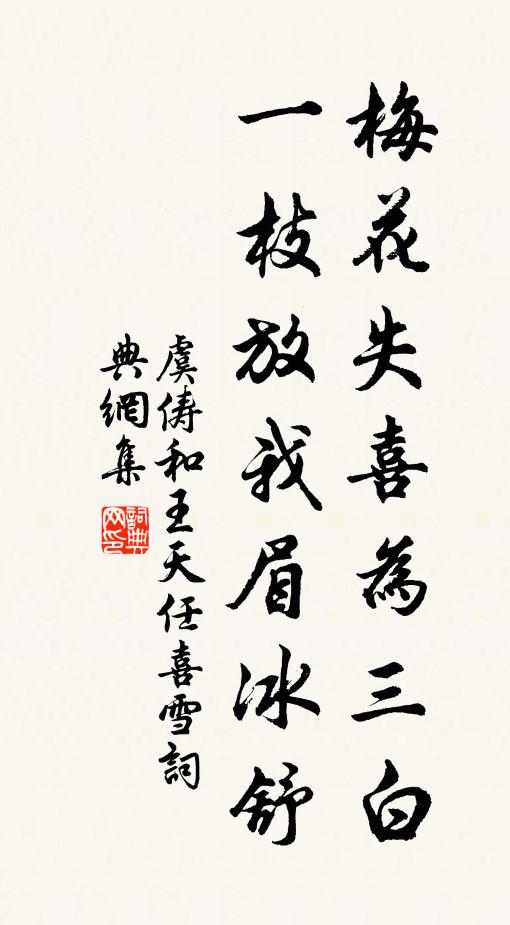 梅花失喜為三白
一枝放我眉冰舒
虞俦和王天任喜雪詞
典網集
詞典
网印